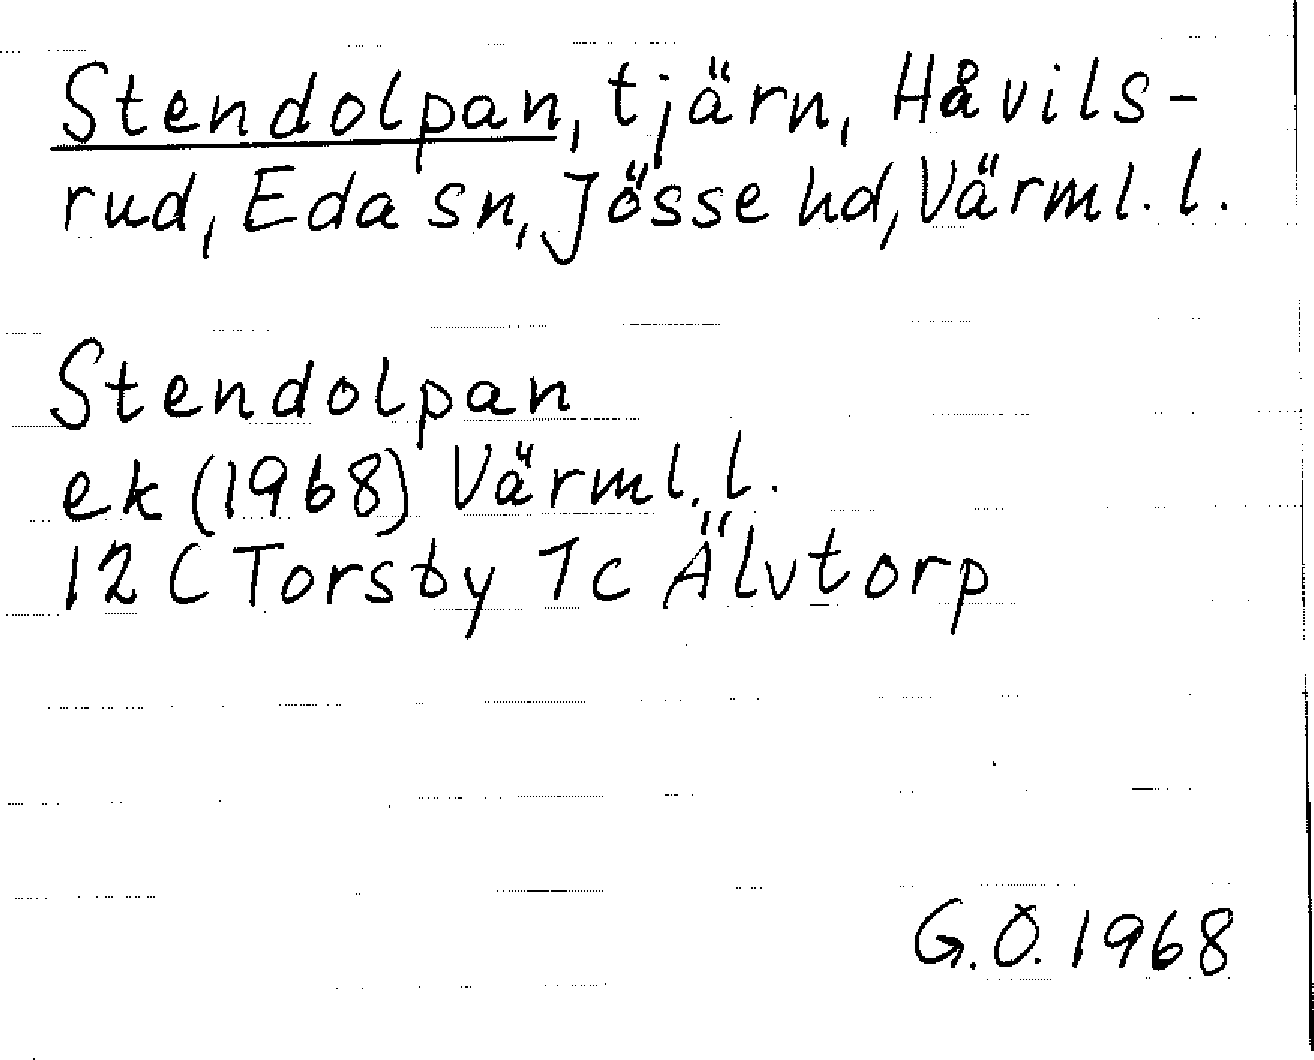 Stendolpan, tjärn, Håvils-
rud, Eda sn, Jösse hd, Värml. l.
Stendolpan
ek (1968) Värml. l.
12 C Torsby 1c Älvtorp
G.Ö. 1968